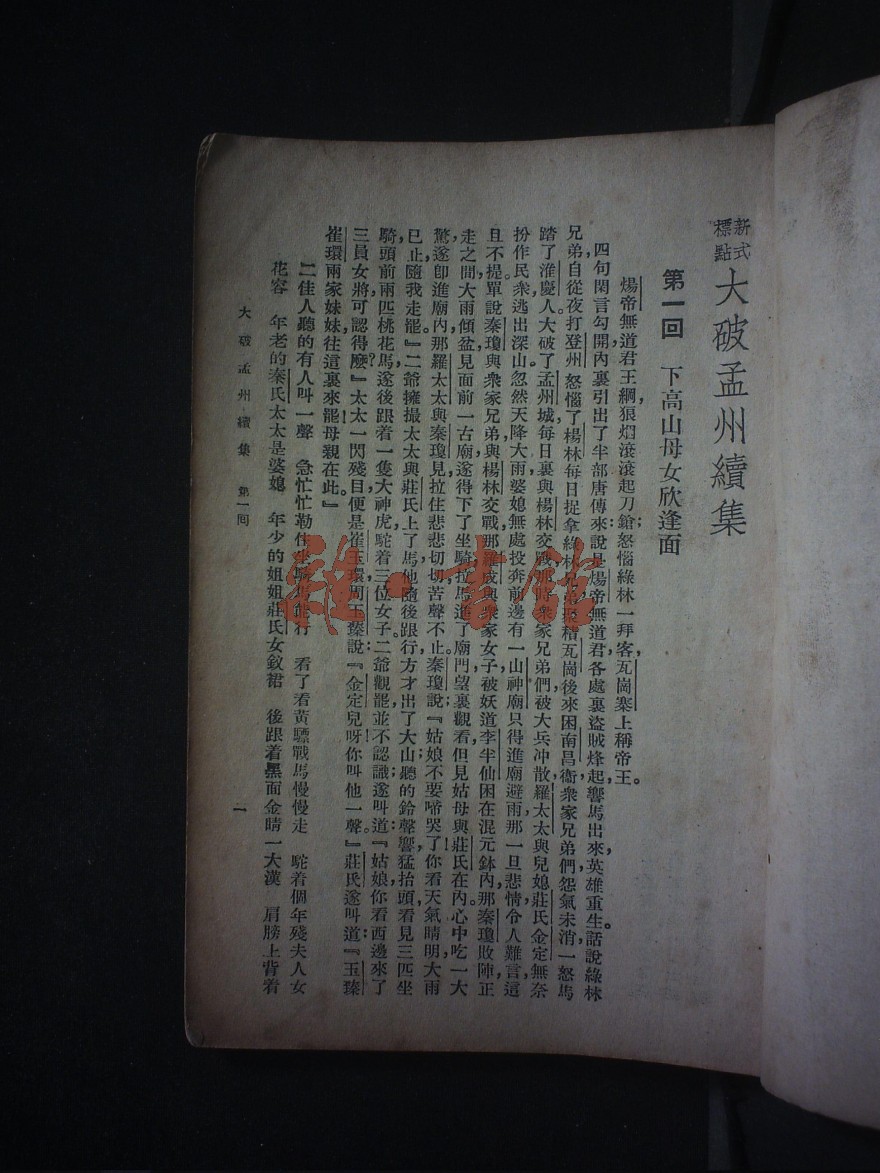 新式標點
大破孟州續集
第一回 下高山母女欣逢面
煬帝無道君王綱,狼烟滾滾起刀鎗;怒惱綠林一拜客,瓦崗寨上稱帝王。
四句閑言勾開,內裏引出了半部唐傳來,說是煬帝無道君,各處裏盜賊烽起,響馬出來,英雄重生。話說綠林
兄弟,自從夜打登州,怒惱了楊林,每日捉拿綠林
瓦崗,後來困南昌,衞衆家兄弟們,怨氣未消,一怒馬
踏了淮慶,人大破了孟州城,每日裏與楊林交戰,
衆家兄弟們,被大兵冲散,羅太太與兒媳莊氏金定無奈,
扮作民衆,逃出深山,忽然天降大雨,婆媳無處投奔,前邊有一山神廟,只得進廟避雨,那一旦悲情,令人難言,這
且不提。單說秦瓊與衆家兄弟,與楊林交戰,那羅成與衆家女子,被妖道李半仙困在混元鉢內,那秦瓊敗陣,正
走之間,大雨傾盆,見面前一古廟,遂得下了坐騎,拉馬進了廟門,望裏觀看,但見姑母與莊氏在內,心中吃一大
驚,遂卽進廟內,那羅太太與秦瓊見,拉住悲悲切切,苦聲不止。秦瓊說:『姑娘不要啼哭了,你看天氣晴明,大雨
已止,隨我走罷。』二爺擁撮太太與莊氏上了馬,他隨後跟行,方才出了大山,聽的鈴聲響,猛抬頭看見三匹坐
騎,頭前兩匹桃花馬,遂後跟着一隻大神虎,駝着三位女子,二爺觀罷,並不認識,遂叫道:『姑娘你看西邊來了
三員女將,可認得麼?』太太一閃殘目,便是崔玉環周玉臻,說:『金定兒呀!你叫他一聲。』莊氏遂叫道:『玉臻
崔環兩家妹妹,往這裏來罷!母親在此。』
二佳人聽的有人叫一聲 急忙忙勒住坐騎馬能行 看了看黃驃戰馬慢慢走 駝着個年殘夫人女
花容 年老的秦氏太太是婆媳 年少的姐姐莊氏女釵裙 後跟着黑面金睛一大漢 肩膀上背着
大破孟州續集 第一回
一
雜·書館